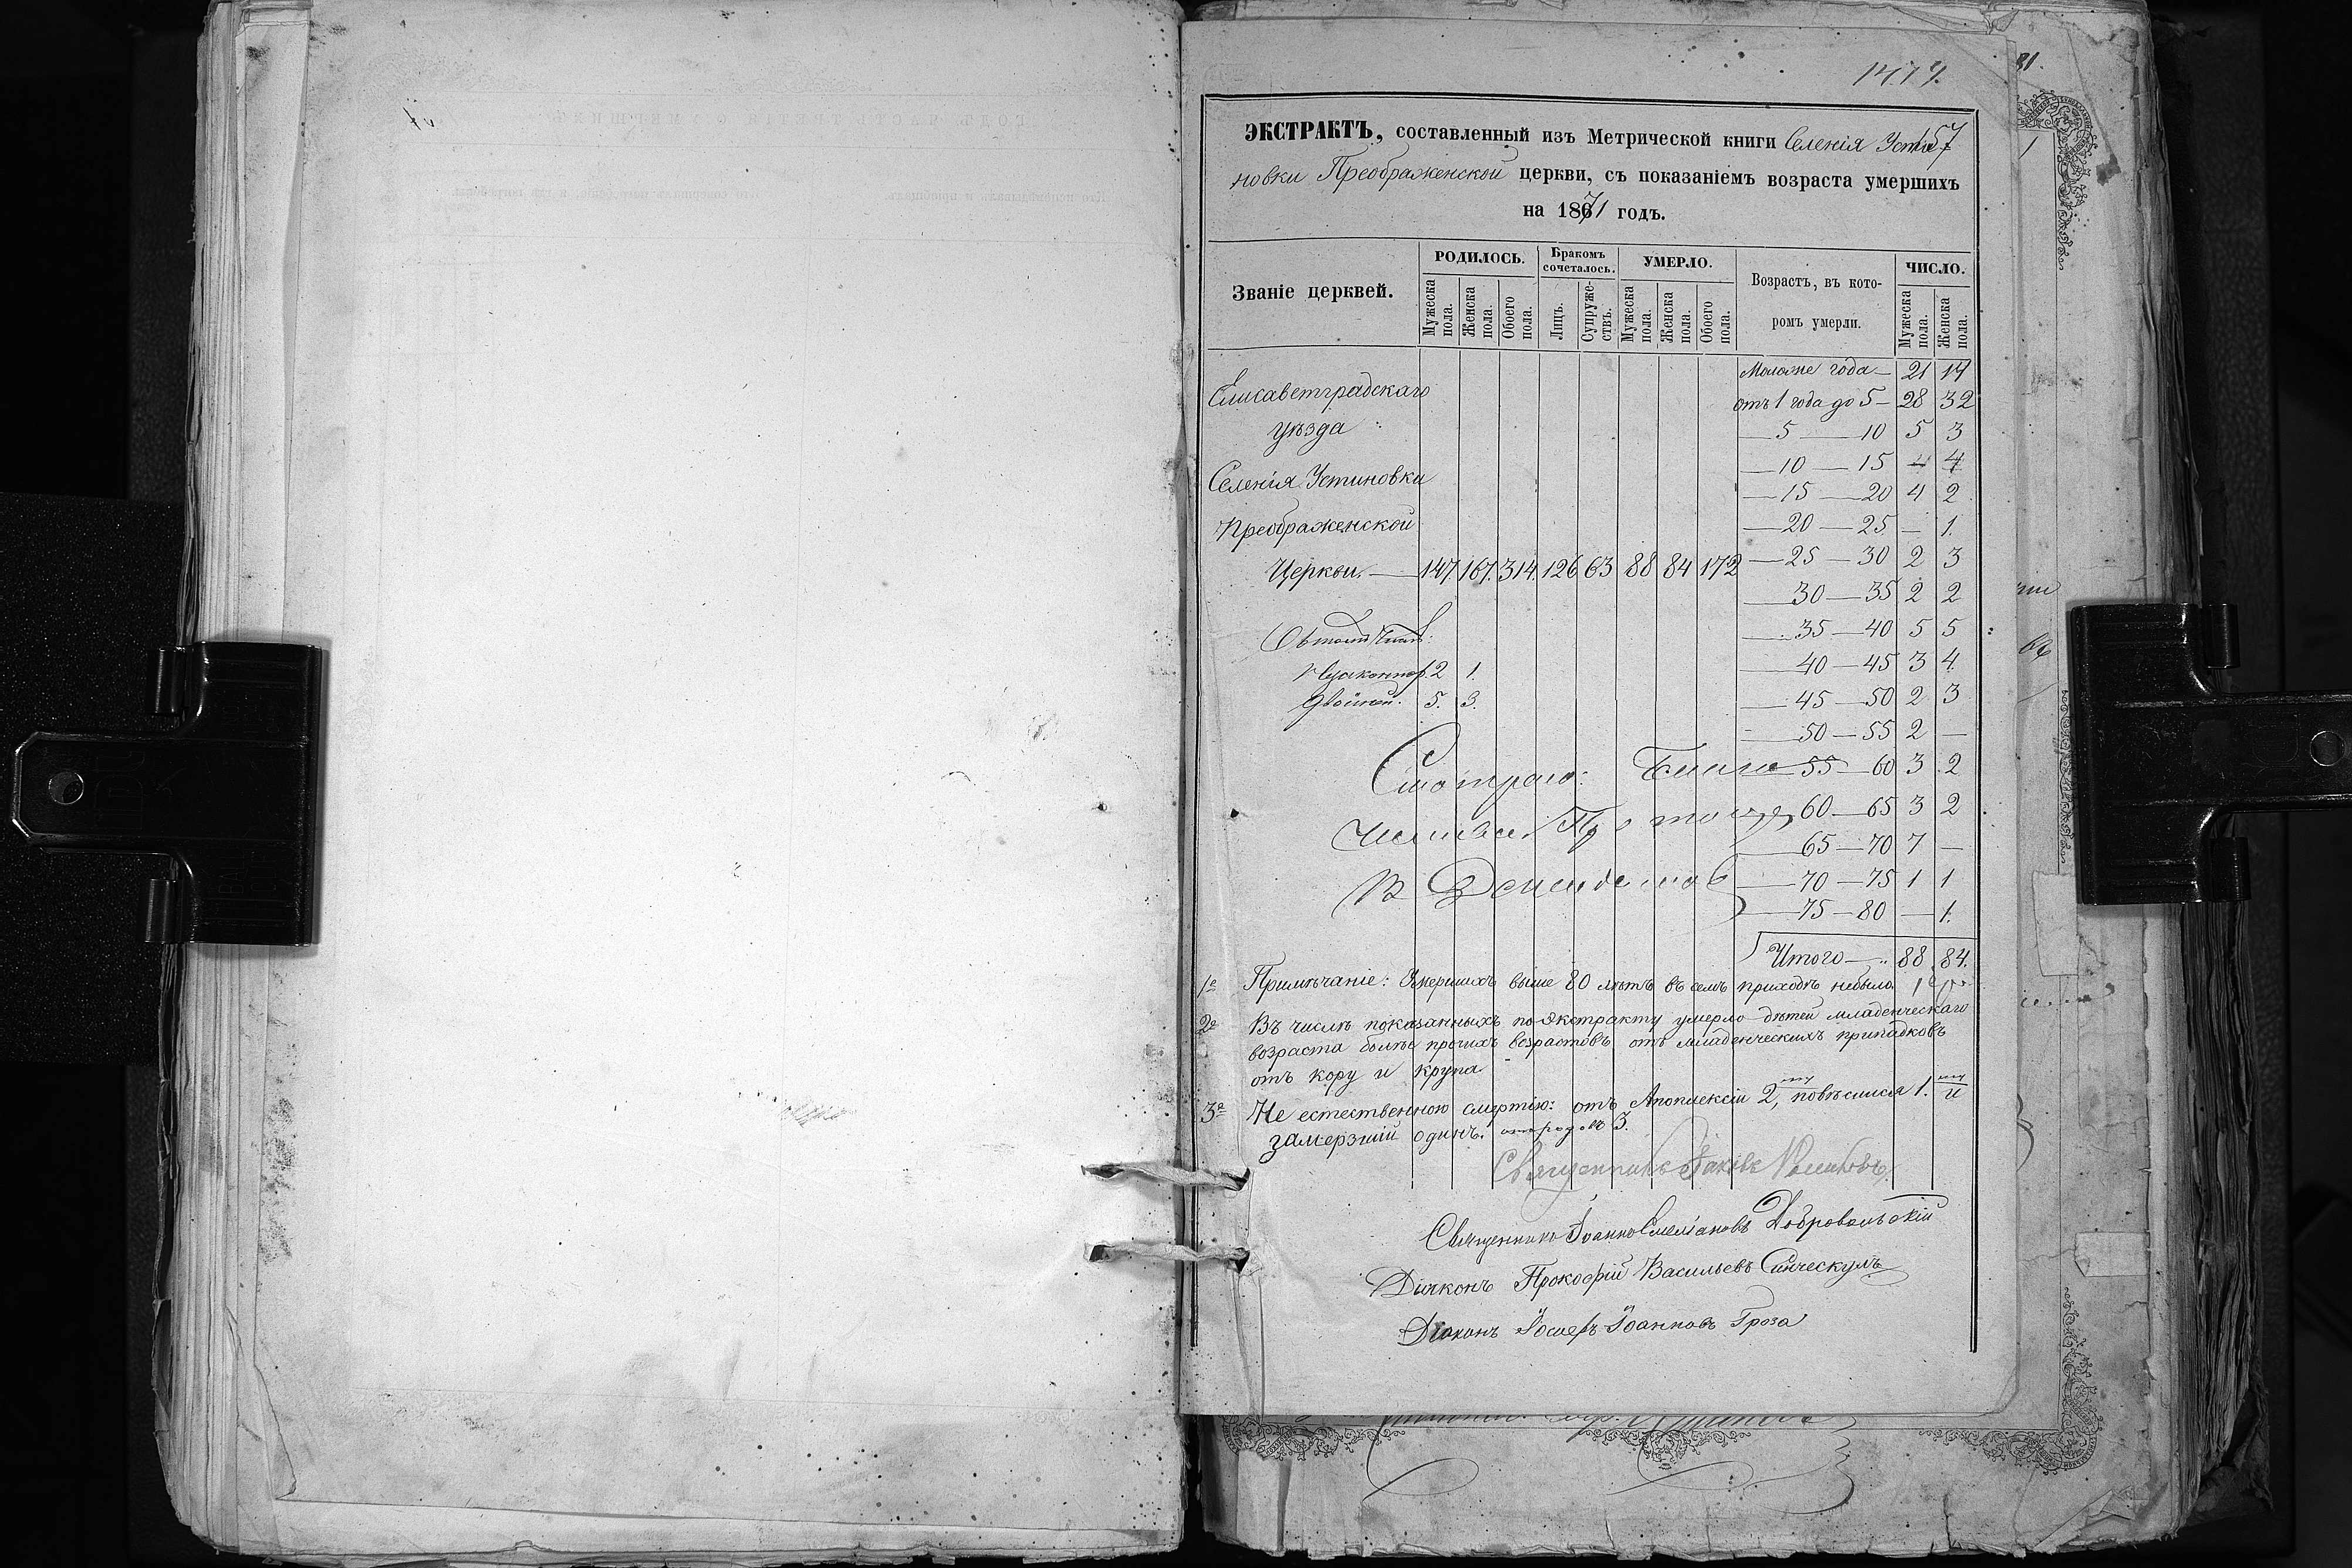 1414.
ЭКСТРАКТЪ, составленный изъ Метрической книги Селенія Усти 57
новки Преображенской церкви, съ показаніемъ возраста умершихъ
на 1871 годъ.
Званіе церквей. РОДИЛОСЬ. Бракомъ сочеталось. УМЕРЛО. Возрастъ, въ кото- ромъ умерли. ЧИСЛО.
Мужеска пола. Женска пола. Обоего пола. Лицъ. Супруже- ствъ. Мужеска пола. Женска пола. Обоего пола. Мужеска пола. Женска пола.
Моложе года — 21 14
Елисаветградскаго
отъ 1 года до 5 — 28 32
уѣзда
— 5 — 10 5 3
— 10 — 15 4
Селенія Устиновки
— 15 — 20 4 2
Преображенской
— 20 — 25 — 1.
Церкви. — 147. 167. 314. 126 63 88 84 172
— 25 — 30 2 3
— 30 — 35 2 2
— 35 — 40 5 5
— 40 — 45 3 4.
2 1.
Двойней. 5. 3.
— 45 — 50 2 3
— 50 — 55 2 —
— 55 — 60 3 2
60 — 65 3 2
— 65 — 70 7 —
— 70 — 75 1 1
— 75 — 80 — 1.
Итого — 88 84.
1е Примѣчаніе: Умершихъ выше 80 лѣтъ въ семъ приходѣ небыло.
2е Въ числѣ показанныхъ по экстракту умерло дѣтей младенческаго
возраста болѣе прочихъ возрастовъ отъ младенческихъ припадковъ
отъ кору и крупа
3е Не естественною смертію: отъ Апоплексіи 2, повѣсился 1. и
замерзшій одинъ. отъ родовъ 3.
Священникъ Іаковъ
Священникъ Іоаннъ Емеліановъ Добровольскій
Діаконъ Прокофій Васильевъ
Діаконъ Іосифъ Іоанновъ Гроза